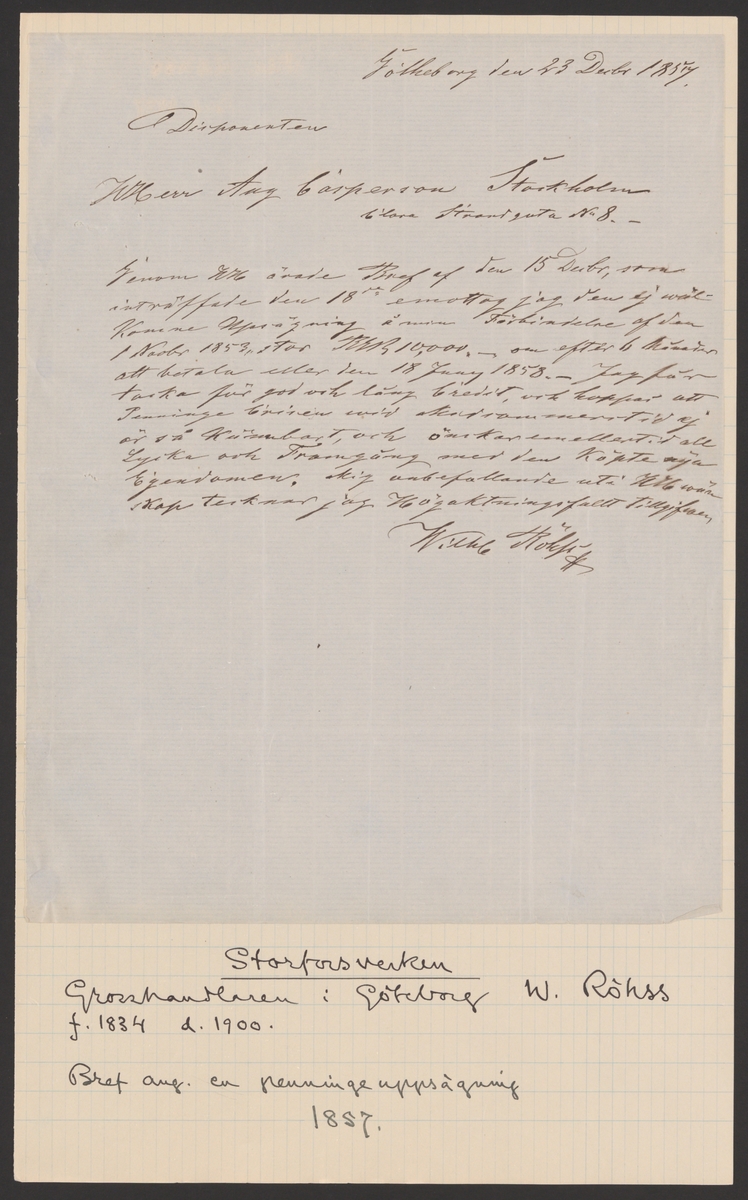 Götheborg den 23 Decbr 1857.
Disponenten
WHerr Aug Casperson Stockholm
Clara Strandgata No 8. —
Genom WH ärade Bref af den 15 Decbr, som
inträffade den 18de emottog jag den ej wäl-
komne Upsägning å min Förbindelse af den
1 Novbr 1853, stor RR 10,000. — om efter 6 Månader
att betala eller den 18 Juny 1858. — Jag får
tacka för god och lång Credit, och hoppas att
Penninge Crisen wid Midsommerstid ej
är så kännbart, och önskar emellertid all
Lycka och Framgång med den Köpte nya
Egendomen. Mig anbefallande uti WH wän-
skap tecknar jag Högaktningsfullt tillgifven
Wilh Röhss
Storforsverken
Grosshandlaren i Göteborg W. Röhss
f. 1834 d. 1900.
Bref ang. en penningeuppsägning
1857.